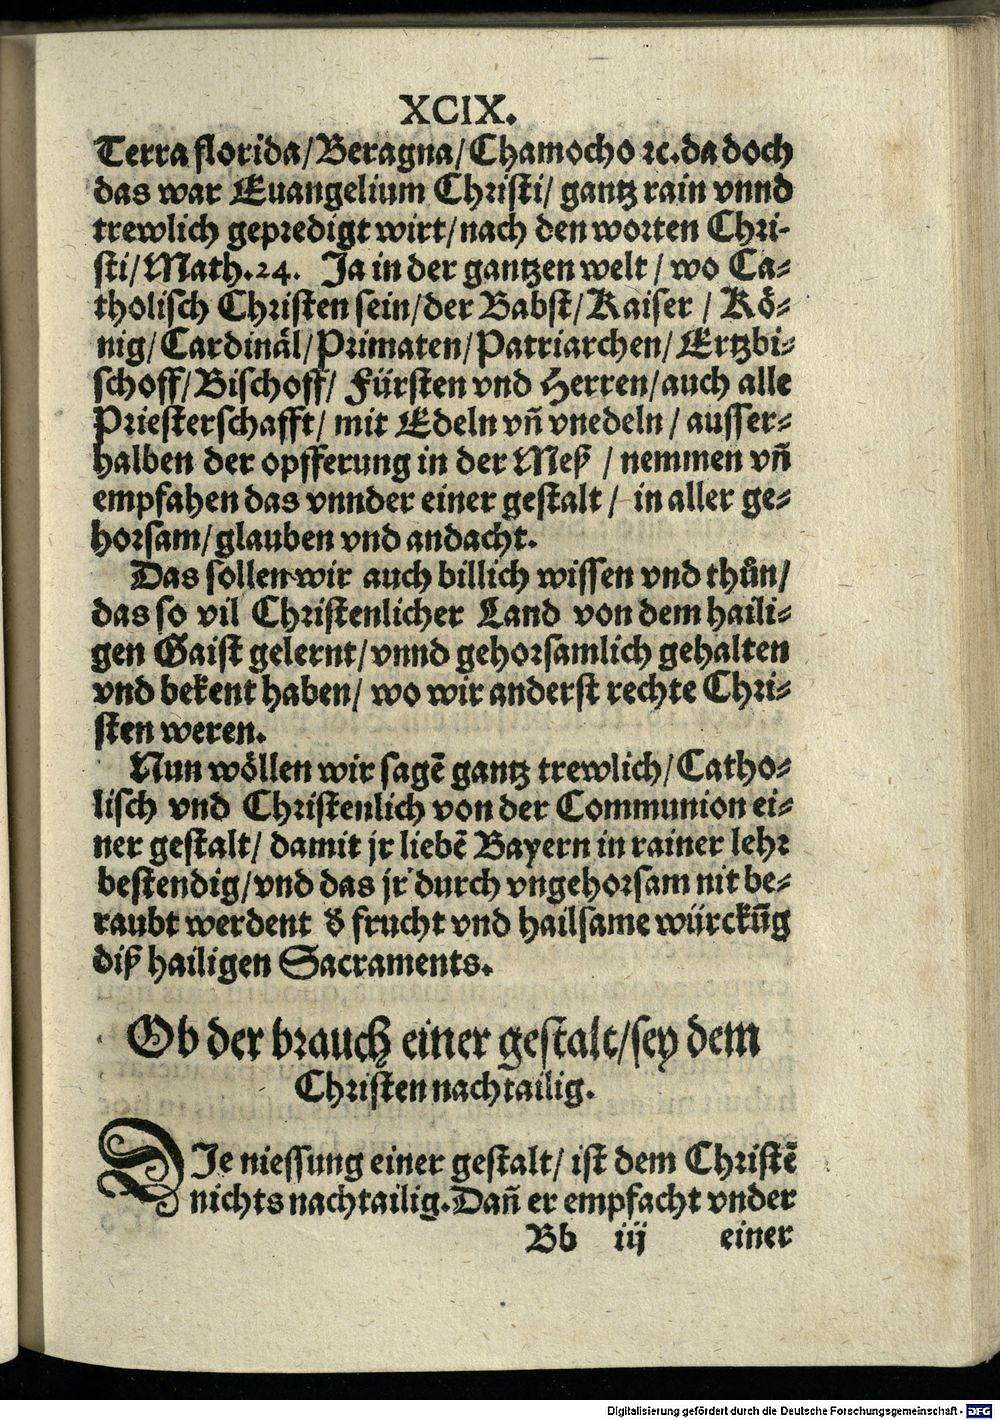 XCIX.
Terra florida/Beragna/Chamocho ꝛc. da doch
das war Euangelium Christi/ gantz rain vnnd
trewlich gepredigt wirt/nach den worten Chri-
sti/Math.24. Ja in der gantzen welt/ wo Ca-
tholisch Christen sein/der Babst/Kaiser/ Kö-
nig/Cardinäl/Primaten/Patriarchen/Ertzbi-
schoff/Bischoff/ Fürsten vnd Herren/auch alle
Priesterschafft/ mit Edeln vñ vnedeln/ ausser-
halben der opfferung in der Meß/ nemmen vñ
empfahen das vnnder einer gestalt/ in aller ge-
horsam/glauben vnd andacht.
Das sollen wir auch billich wissen vnd thůn/
das so vil Christenlicher Land von dem haili-
gen Gaist gelernt/vnnd gehorsamlich gehalten
vnd bekent haben/ wo wir anderst rechte Chri-
sten weren.
Nun wöllen wir sagẽ gantz trewlich/Catho-
lisch vnd Christenlich von der Communion ei-
ner gestalt/ damit jr liebẽ Bayern in rainer lehr
bestendig/vnd das jr durch vngehorsam nit be-
raubt werdent ð frucht vnd hailsame würckũg
diß hailigen Sacraments.
Ob der brauch einer gestalt/sey dem
Christen nachtailig.
DIe niessung einer gestalt/ ist dem Christẽ
nichts nachtailig. Dañ er empfacht vnder
Bb iij einer
Digitalisierung gefördert durch die Deutsche Forschungsgemeinschaft - DFG